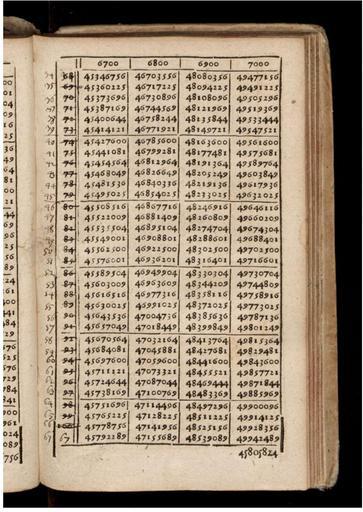 6700 6800 6900 7000
68 45346756 46703556 48080356 49477156
69 45360225 46717225 48094225 49491225
70 45373696 46730896 48108096 49505296
71 45387169 46744569 48121969 49519369
72 45400644 46758244 48135844 49533444
73 45414121 46771921 48149721 49547521
74 45427600 46785600 48163600 49561600
75 45441081 46799281 48177481 49575681
76 45454564 46812964 48191364 49589764
77 45468049 46826649 48205249 49603849
78 45481536 46840336 48219136 49617936
79 45495025 46854025 48233025 49632025
80 45508516 46867716 48246916 49646116
81 45522009 46881409 48260809 49660209
82 45535504 46895104 48274704 49674304
83 45549001 46908801 48288601 49688401
84 45562500 46922500 48302500 49702500
85 45576001 46936201 48316401 49716601
86 45589504 46949904 48330304 49730704
87 45603009 46963609 48344209 49744809
88 45616516 46977316 48358116 49758916
89 45630025 46991025 48372025 49773025
90 45643536 47004736 48385936 49787136
91 45657049 47018449 48399849 49801249
92 45670564 47032164 48413764 49815364
93 45684081 47045881 48427681 49829481
94 45697600 47059600 48441600 49843600
95 45711121 47073321 48455521 49857721
96 45724644 47087044 48469444 49871844
97 45738169 47100769 48483369 49885969
98 45751696 47114496 48497296 49900096
99 45765225 47128225 48511225 49914225
100 45778756 47141956 48525156 49928356
67 67 45792289 47155689 48539089 49942489
45805824